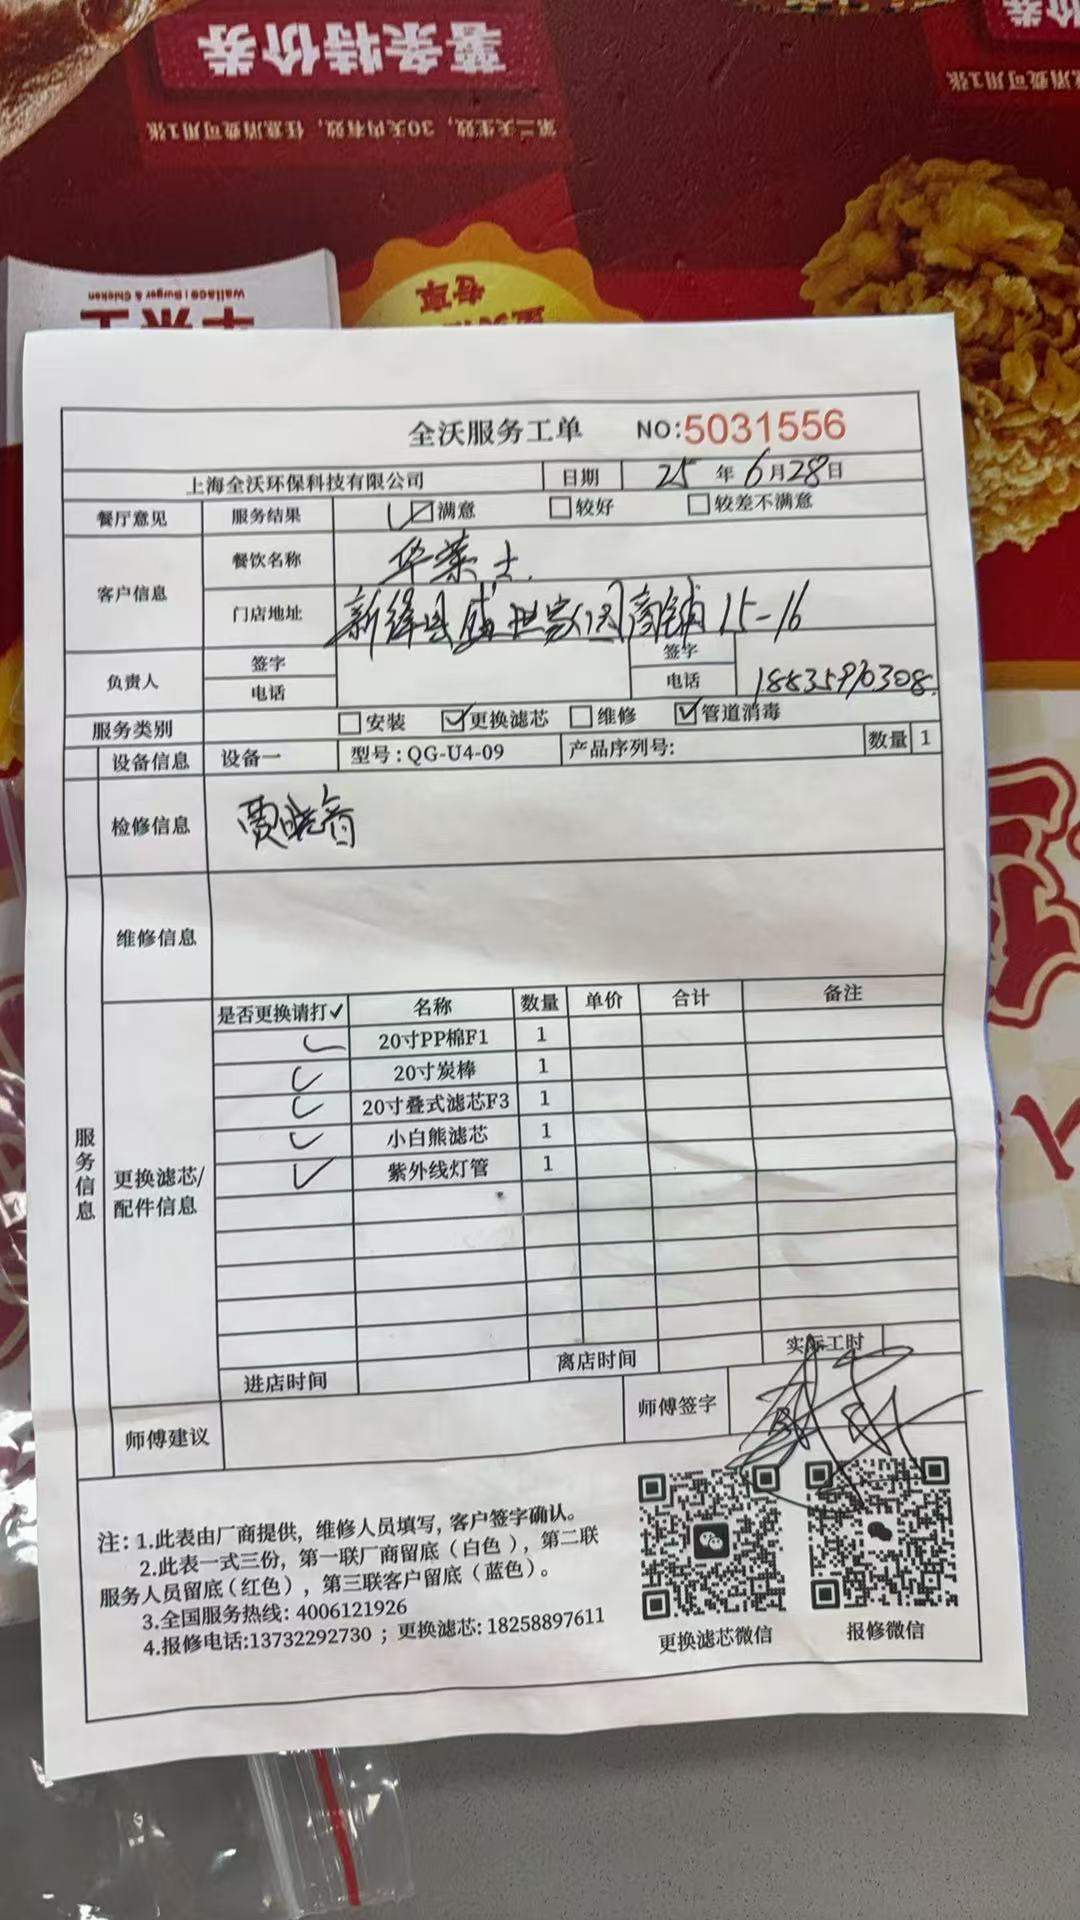 薯条特价券
第二天生效，30天内有效，任意消费可用1张
价券
意消费可用1张
Wallace | Burger & Chicken
华莱士
专享
全沃服务工单 NO:5031556
上海全沃环保科技有限公司 日期 25 年 6 月 28 日
餐厅意见 服务结果 满意 较好 较差不满意
客户信息 餐饮名称 华莱士
门店地址 新绛县盛世家园商铺15-16
负责人 签字 签字
电话 电话 18835970308
服务类别 安装 更换滤芯 维修 管道消毒
设备信息 设备一 型号：QG-U4-09 产品序列号： 数量 1
检修信息 贾晓
维修信息
服务信息
更换滤芯/配件信息
是否更换请打✓ 名称 数量 单价 合计 备注
✓ 20寸PP棉F1 1
✓ 20寸炭棒 1
✓ 20寸叠式滤芯F3 1
✓ 小白熊滤芯 1
✓ 紫外线灯管 1
进店时间 离店时间 实际工时
师傅建议 师傅签字
注：1.此表由厂商提供，维修人员填写，客户签字确认。
2.此表一式三份，第一联厂商留底（白色），第二联
服务人员留底（红色），第三联客户留底（蓝色）。
3.全国服务热线：4006121926
4.报修电话:13732292730；更换滤芯:18258897611
更换滤芯微信 报修微信